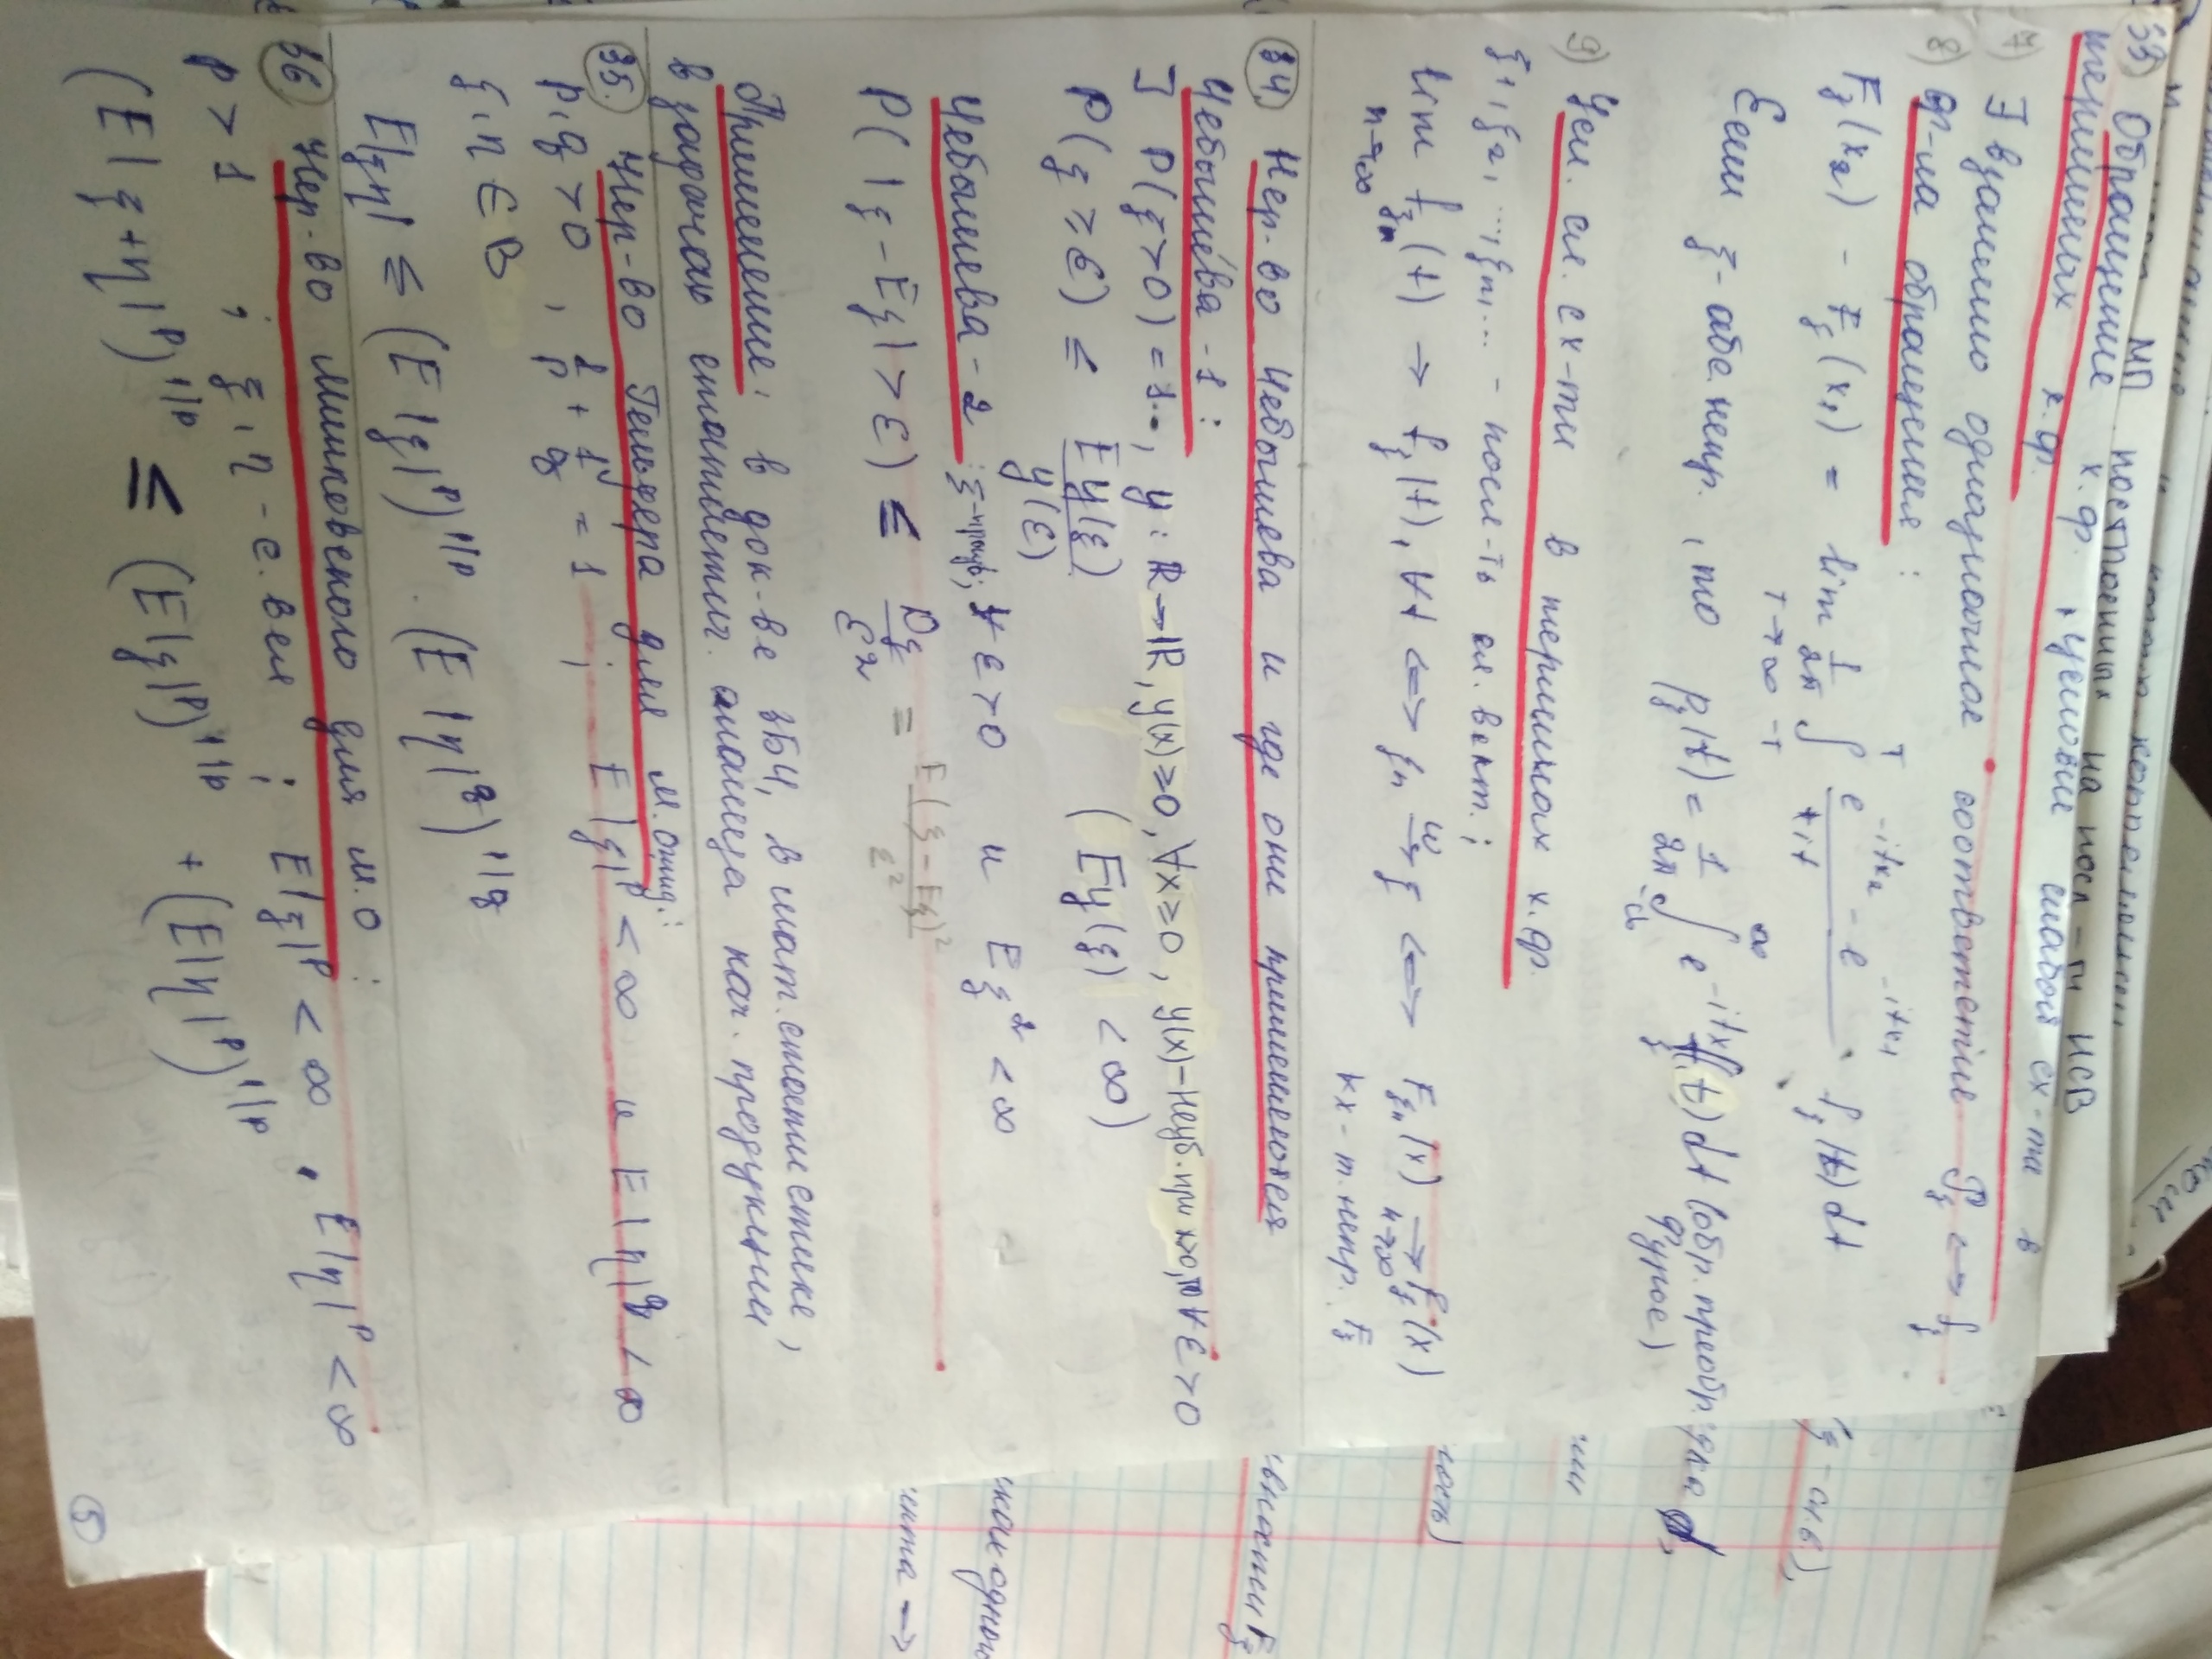 МП построенных на посл-ти НСВ
33) Обращение х.ф., условие слабой сх-ти в
терминах х.ф.
7) ∃ взаимно однозначное соответствие P_ξ ↔ f_ξ
8) Ф-ла обращения:
F_ξ(x₂) - F_ξ(x₁) = lim_{T→∞} 1/2π ∫_{-T}^{T} (e^{-itx₂} - e^{-itx₁})/(-it) · f_ξ(t) dt
Если ξ - абс. непр., то p_ξ(t) = 1/2π ∫_{-∞}^{∞} e^{-itx} f_ξ(t) dt (обр. преобр.
Фурье)
9) Усл. сл. сх-ти в терминах х.ф.
ξ₁, ξ₂, ..., ξₙ, ... - посл-ть сл. вект.;
lim_{n→∞} f_{ξₙ}(t) → f_ξ(t), ∀t ⟺ ξₙ →^ω ξ ⟺ F_{ξₙ}(x) →_{n→∞} F_ξ(x)
∀x - т. непр. F_ξ
34. Нер-во Чебышева и где они применяются
Чебышёва - 1:
] P(ξ>0) = 1, y: ℝ→ℝ, y(x)≥0, ∀x≥0, y(x)-неуб. при x>0, то ∀ε>0
P(ξ ≥ ε) ≤ Ey(ξ)/y(ε) (Ey(ξ) < ∞)
Чебышева - 2: ξ-произв; ∀ ε>0 и Eξ² < ∞
P(|ξ - Eξ| > ε) ≤ Dξ/ε² = E(ξ - Eξ)²/ε²
Применение: в док-ве ЗБЧ, в мат. статистике,
в задачах статистич. анализа кач. продукции
35. Нер-во Гельдера для м. ожид.:
p, q > 0, 1/p + 1/q = 1; E|ξ|^p < ∞ и E|η|^q < ∞
ξ, η ∈ B
E|ξη| ≤ (E|ξ|^p)^{1/p} · (E|η|^q)^{1/q}
36 Нер-во Минковского для м.о:
p > 1; ξ, η - с. вел; E|ξ|^p < ∞, E|η|^p < ∞
(E|ξ+η|^p)^{1/p} ≤ (E|ξ|^p)^{1/p} + (E|η|^p)^{1/p}
5
(ξ - сл.в.),
ость)
ивности F_ξ
иках одного
мента →